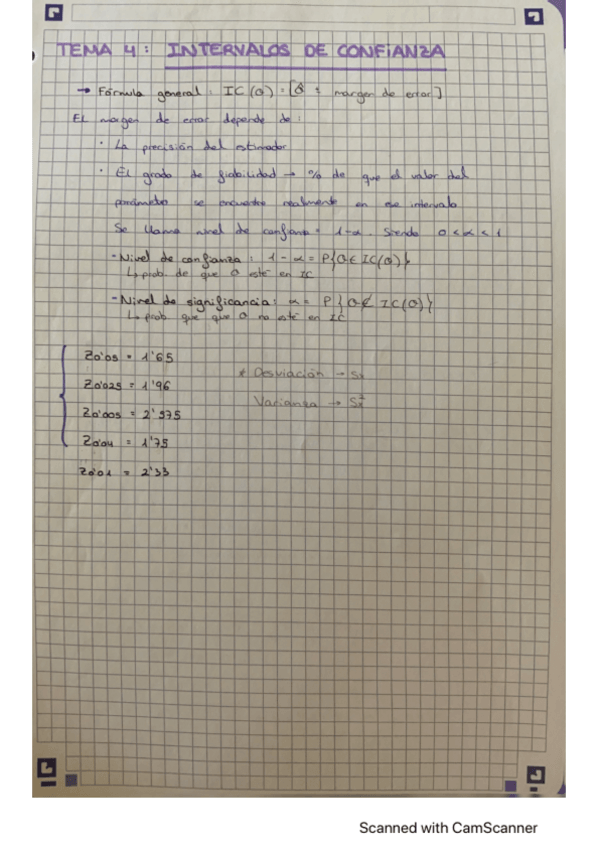 TEMA 4: INTERVALOS DE CONFIANZA
→ Fórmula general: IC(θ) = [θ̂ ± margen de error]
El margen de error depende de:
· La precisión del estimador
· El grado de fiabilidad → % de que el valor del
parámetro se encuentre realmente en ese intervalo
Se llama nivel de confianza = 1-α. Siendo 0<α<1
- Nivel de confianza: 1-α = P{θ∈ IC(θ)}
↳ prob. de que θ esté en IC
- Nivel de significancia: α = P{θ∉ IC(θ)}
↳ prob. que que θ no esté en IC
Z0'05 = 1'65
Z0'025 = 1'96
* Desviación → Sx
Z0'005 = 2'575
Varianza → Sx²
Z0'04 = 1'75
Z0'01 = 2'33
Scanned with CamScanner